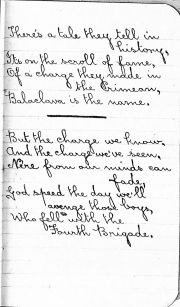 There's a tale they tell in
history,
Its on the scroll of fame,
Of a charge they made in
the Crimean,
Balaclava is the name.
But the charge we know.
And the charge we've seen,
Ne're from our minds can
fade,
God speed the day we'll
avenge those boys,
Who fell with the
Fourth Brigade.